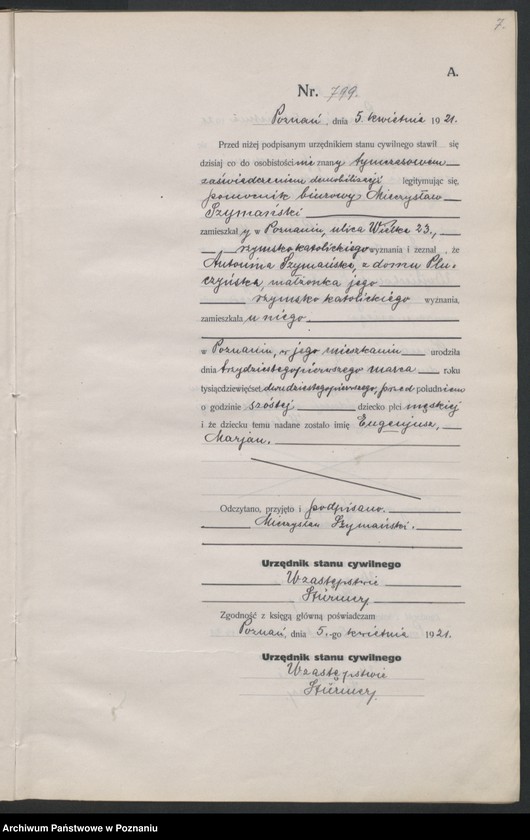 7.
A.
Nr. 799.
Poznań, dnia 5. kwietnia 1921.
Przed niżej podpisanym urzędnikiem stanu cywilnego stawił się
dzisiaj co do osobistości nie znany tymczasowem
zaświadczeniem demobilizacji legitymując się,
pomocnik biurowy Mieczysław
Szymański
zamieszkały w Poznaniu, ulica Wielka 23.,
rzymsko katolickiego wyznania i zeznał, że
Antonina Szymańska, z domu Płu-
czyńska, małżonka jego
rzymsko katolickiego wyznania,
zamieszkała u niego
w Poznaniu, w jego mieszkaniu urodziła
dnia trzydziestegopierwszego marca roku
tysiącdziewięćset dwudziestegopierwszego, przed południem
o godzinie szóstej dziecko płci męskiej
i że dziecku temu nadane zostało imię Eugenjusz,
Marjan.
Odczytano, przyjęto i podpisano.
Mieczysław Szymański.
Urzędnik stanu cywilnego
W zastępstwie
Stürmer
Zgodność z księgą główną poświadczam
Poznań, dnia 5.-go kwietnia 1921.
Urzędnik stanu cywilnego
W zastępstwie
Stürmer
Archiwum Państwowe w Poznaniu